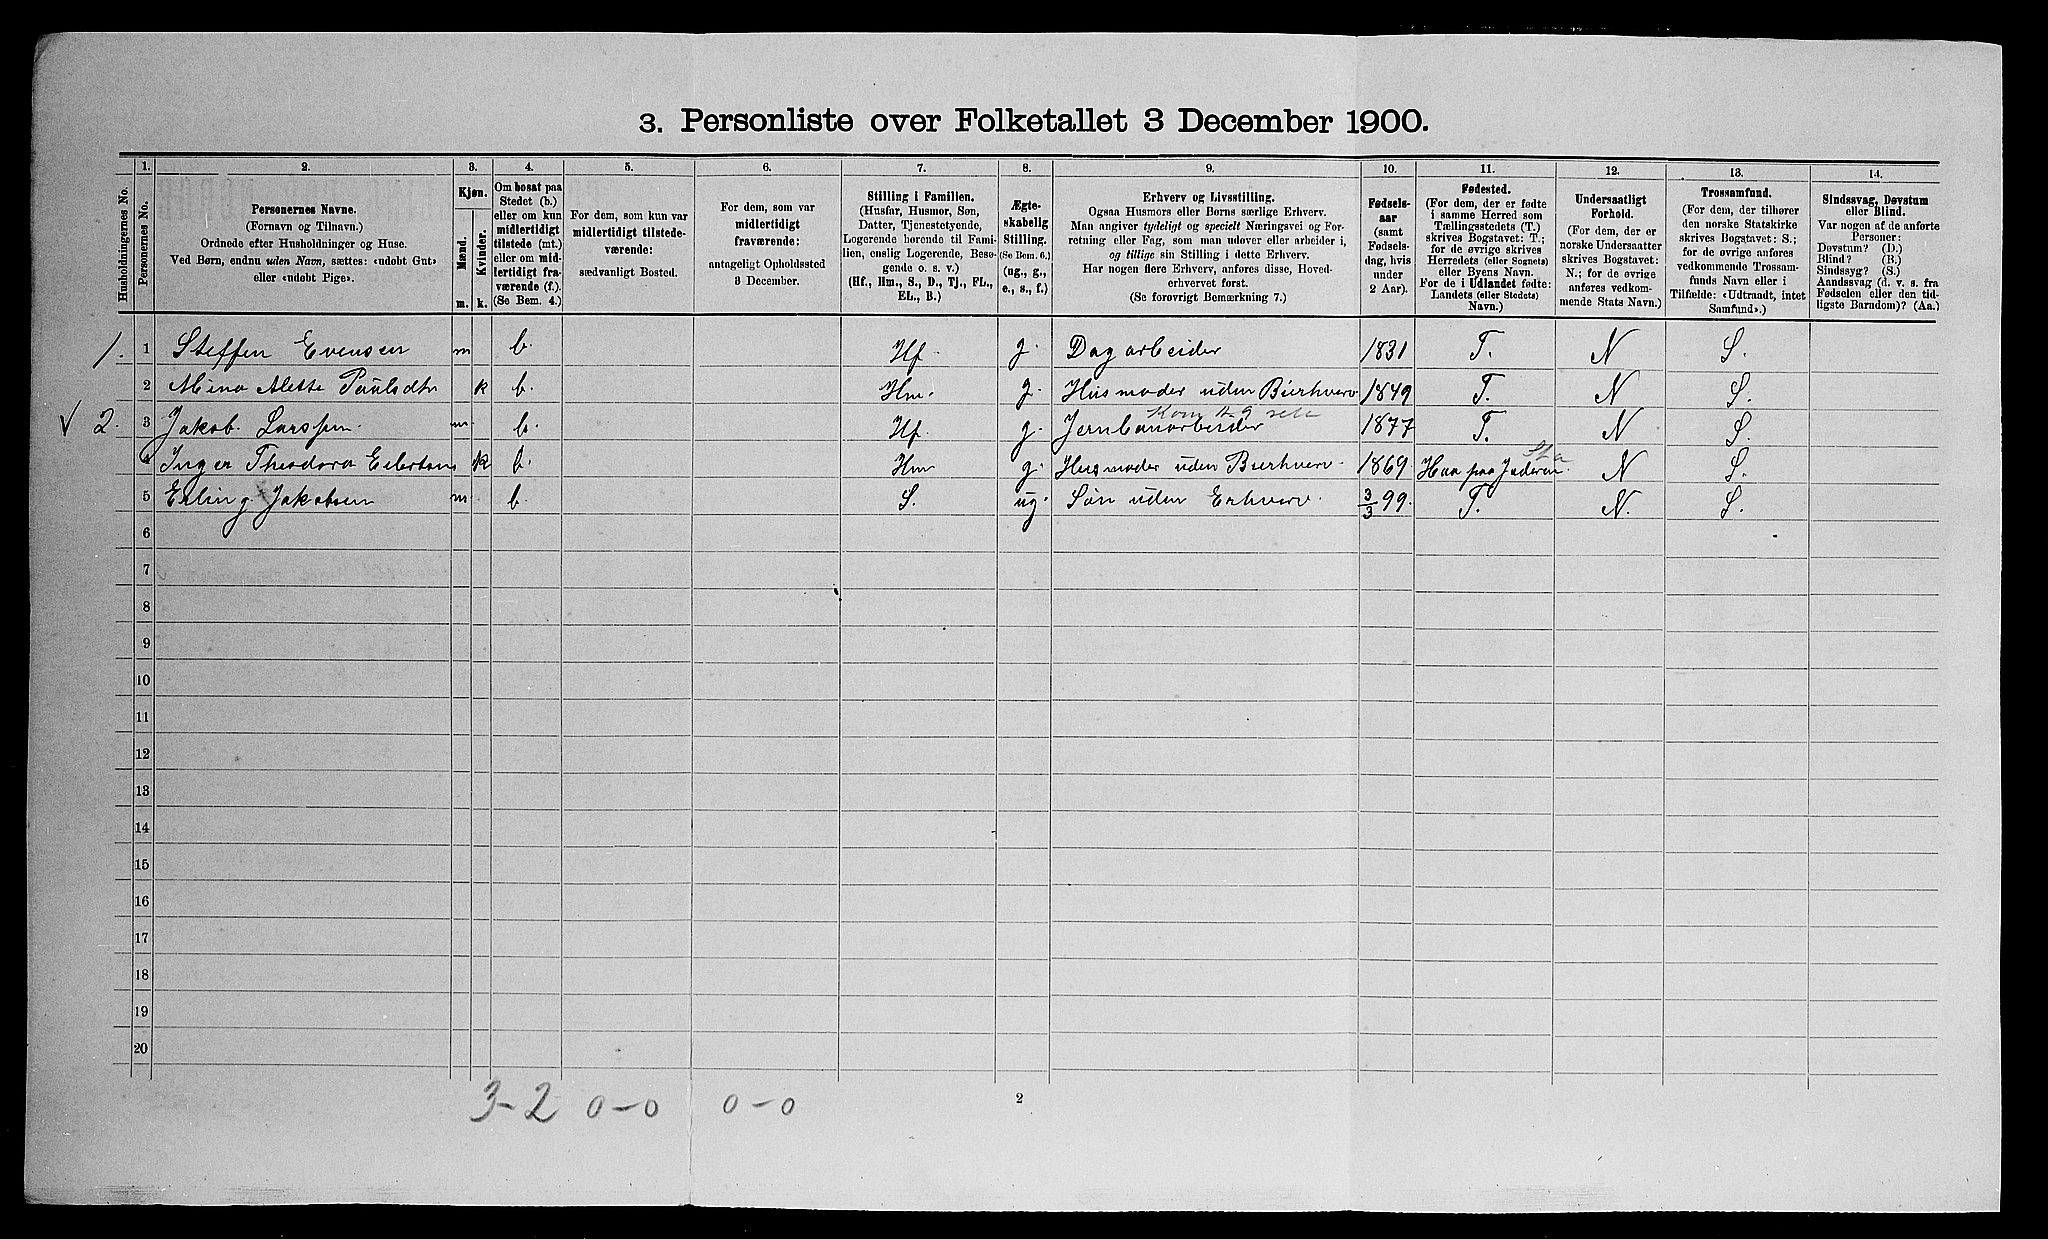 3. Personliste over Folketallet 3 December 1900.
1. 2. 3. 4. 5. 6. 7. 8. 9. 10. 11. 12. 13. 14.
Husholdningernes No.
Personernes No.
Personernes Navne.
(Fornavn og Tilnavn.)
Ordnede efter Husholdninger og Huse.
Ved Børn, endnu uden Navn, sættes: «udøbt Gut»
eller «udøbt Pige».
Kjøn.
Mænd.
Kvinder.
m. k.
Om bosat paa
Stedet (b.)
eller om kun
midlertidigt
tilstede (mt.)
eller om mid-
lertidigt fra-
værende (f.).
(Se Bem. 4.)
For dem, som kun var
midlertidigt tilstede-
værende:
sædvanligt Bosted.
For dem, som var
midlertidigt
fraværende:
antageligt Opholdssted
3 December.
Stilling i Familien.
(Husfar, Husmor, Søn,
Datter, Tjenestetyende,
Logerende hørende til Fami-
lien, enslig Logerende, Besø-
gende o. s. v.)
(Hf., Hm., S., D., Tj., FL.,
EL., B.)
Ægte-
skabelig
Stilling.
(Se Bem. 6.)
(ug., g.,
e., s., f.)
Erhverv og Livsstilling.
Ogsaa Husmors eller Børns særlige Erhverv.
Man angiver tydeligt og specielt Næringsvei og For-
retning eller Fag, som man udøver eller arbeider i,
og tillige sin Stilling i dette Erhverv.
Har nogen flere Erhverv, anføres disse, Hoved-
erhvervet først.
(Se forøvrigt Bemærkning 7.)
Fødsels-
aar
(samt
Fødsels-
dag, hvis
under
2 Aar).
Fødested.
(For dem, der er fødte
i samme Herred som
Tællingsstedets (T.)
skrives Bogstavet: T.;
for de øvrige skrives
Herredets (eller Sognets)
eller Byens Navn.
For de i Udlandet fødte:
Landets (eller Stedets)
Navn.)
Undersaatligt
Forhold.
(For dem, der er
norske Undersaatter
skrives Bogstavet:
N.; for de øvrige
anføres vedkom-
mende Stats Navn.)
Trossamfund.
(For dem, der tilhører
den norske Statskirke
skrives Bogstavet: S.;
for de øvrige anføres
vedkommende Trossam-
funds Navn eller i
Tilfælde: «Udtraadt, intet
Samfund».)
Sindssvag, Døvstum
eller Blind.
Var nogen af de anførte
Personer:
Døvstum? (D.)
Blind? (B.)
Sindssyg? (S.)
Aandssvag (d. v. s. fra
Fødselen eller den tid-
ligste Barndom)? (Aa.)
1. 1 Steffen Evensen m b. Hf. g. Dagarbeider 1831 T. N S.
2 Mina Alette Paulsdtr k b. Hm. g. Husmoder uden Bierhverv 1849 T. N S.
√ 2. 3 Jakob Larssen m. b. Hf. g. Jernbanarbeider 1877 T. N S.
4 Inger Theodora Eilertsen k b. Hm g. Husmoder uden Bierhverv 1869. Haa paa Jæderen. N S.
5 Erling Jakobsen m b. S. ug. Søn uden Erhverv. 3/3 99. T. N. S.
6
7
8
9
10
11
12
13
14
15
16
17
18
19
20
3-2 0-0 0-0
2